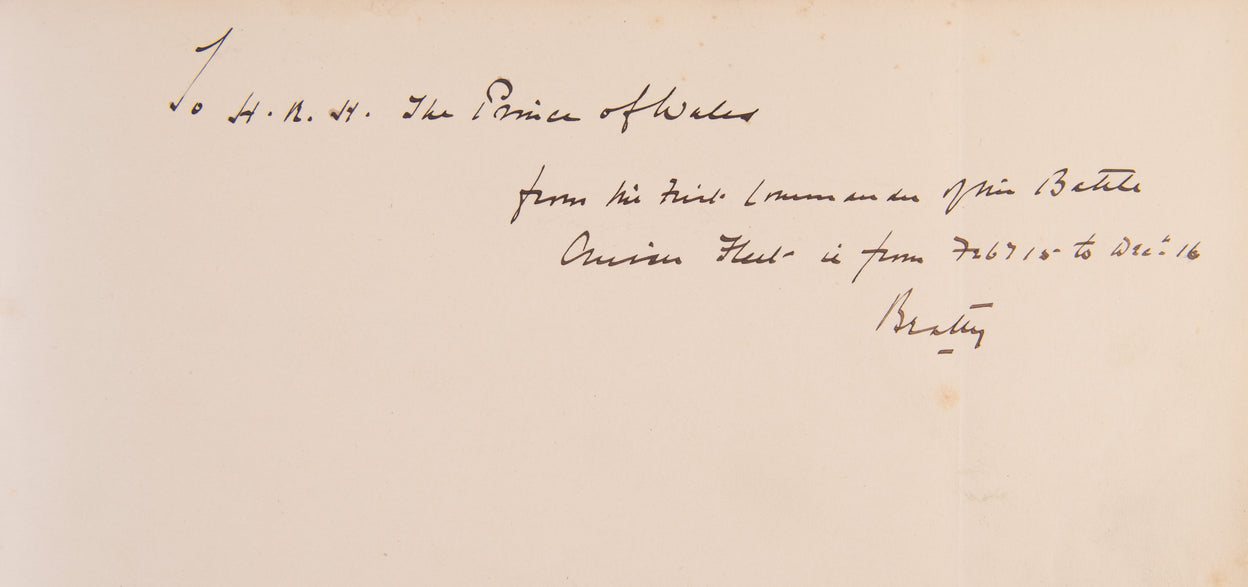 To H. R. H. The Prince of Wales
from the First Commander of the Battle
Cruiser Fleet ie from Feby 15 to Decr 16
Beatty